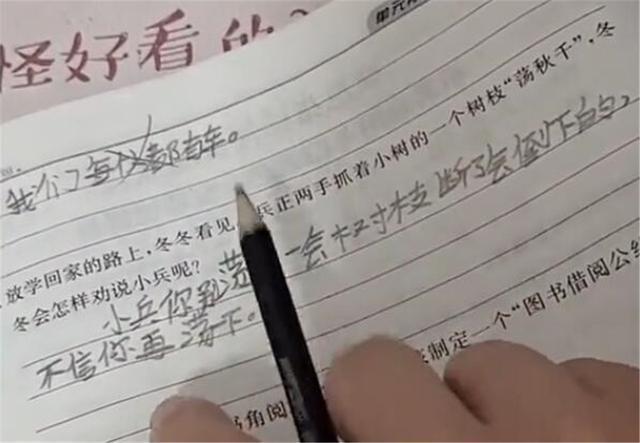 怪好看的
单元
我们每次都有车。
放学回家的路上,冬冬看见 兵正两手抓着小树的一个树枝“荡秋千”,冬
冬会怎样劝说小兵呢?
小兵你别荡 一会树枝断了会倒下白勺,
不信你再荡下。
制定一个“图书借阅公
角阅